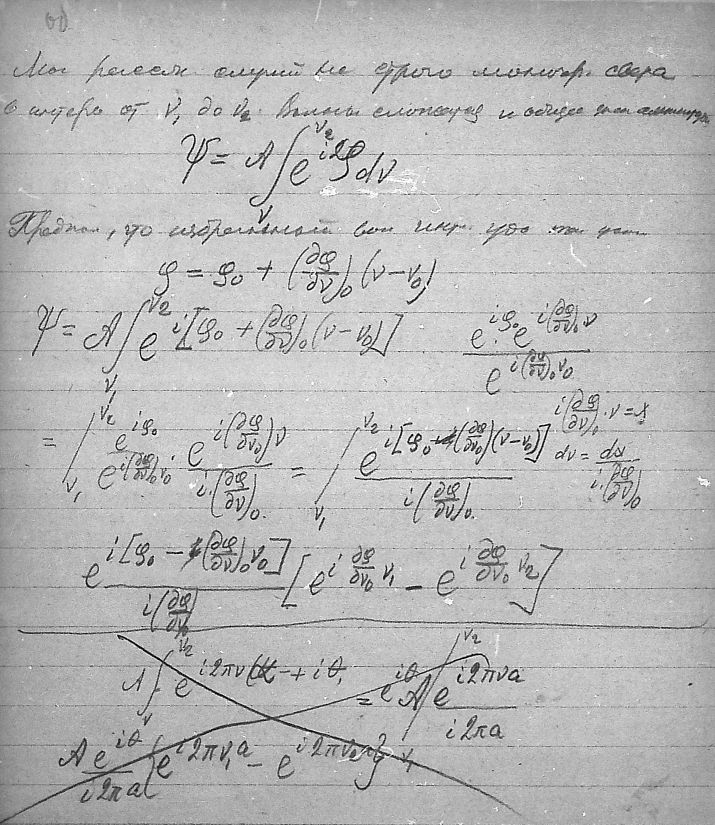 60
Мы рассм. случай не строго монохр. света
в интерв от ν₁ до ν₂. Волны сложатся и общее
Ψ = A ∫_{ν₁}^{ν₂} e^{iφ} dν
Предпол, что
φ = φ₀ + (∂φ/∂ν)₀ (ν − ν₀)
Ψ = A ∫_{ν₁}^{ν₂} e^{i[φ₀ + (∂φ/∂ν)₀ (ν − ν₀)]} e^{iφ₀} · e^{i(∂φ/∂ν)₀ν} / e^{i(∂φ/∂ν)₀ν₀}
= ∫_{ν₁}^{ν₂} e^{iφ₀} / e^{i(∂φ/∂ν)₀ν₀} · e^{i(∂φ/∂ν₀)ν} / i(∂φ/∂ν)₀ = ∫_{ν₁}^{ν₂} e^{i[φ₀ + (∂φ/∂ν₀)(ν − ν₀)]} / i(∂φ/∂ν)₀
i(∂φ/∂ν)₀ · ν = x
dν = dx / i(∂φ/∂ν)₀
e^{i[φ₀ − (∂φ/∂ν)₀ν₀]} / i(∂φ/∂ν₀) [e^{i ∂φ/∂ν₀ ν₁} − e^{i ∂φ/∂ν₀ ν₂}]
A ∫_{ν}^{ν₂} e^{i2πνα + iθ₁} = e^{iθ} A ∫_{ν₁}^{ν₂} e^{i2πνa} / i2πa
A e^{iθ} / i2πa {e^{i2πν₁a} − e^{i2πν₂a}}